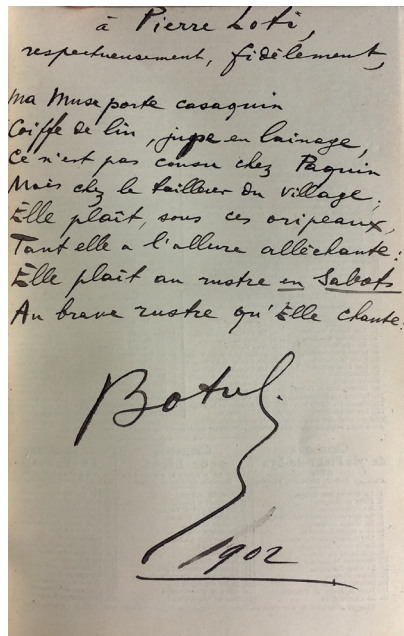 à Pierre Loti,
respectueusement, fidèlement,
Ma Muse porte casaquin
Coiffe de lin, jupe en lainage,
Ce n'est pas cousu chez Paquin
Mais chez le tailleur du village ;
Elle plaît, sous ces oripeaux,
Tant elle a l'allure alléchante :
Elle plaît au rustre en Sabots
Au brave rustre qu'Elle chante.
Botrel.
1902